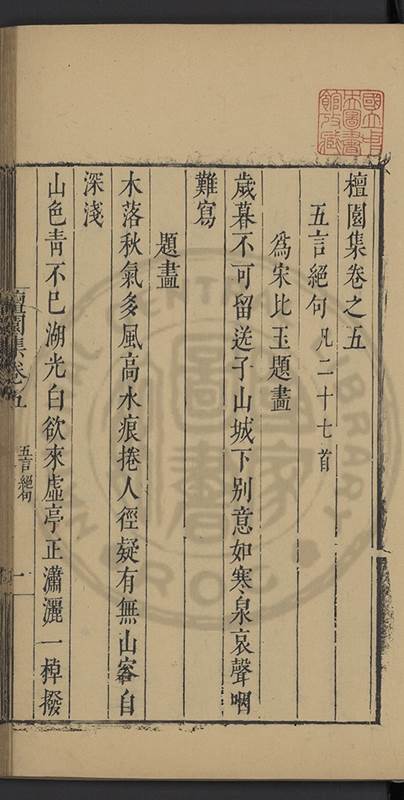 檀園集卷之五
五言絕句 凡二十七首
為宋比玉題畫
歲暮不可留送子山城下別意如寒泉哀聲咽
難寫
題畫
木落秋氣多風高水痕捲人徑疑有無山容自
深淺
山色靑不已湖光白欲來虛亭正瀟灑一棹撥
檀園集卷五
五言絕句
一
國立中央圖書館收藏